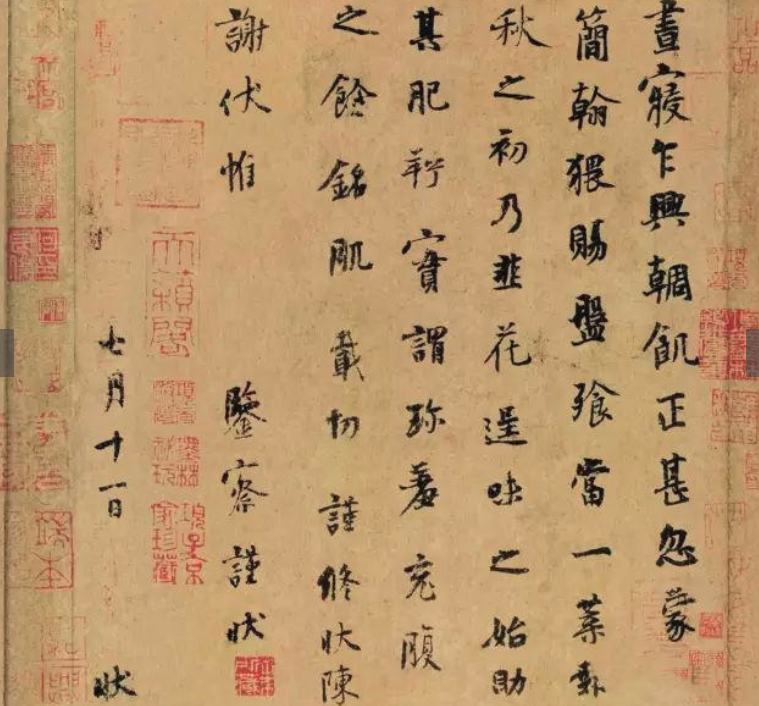 晝寢乍興輖飢正甚忽蒙
簡翰猥賜盤飧當一葉報
秋之初乃韭花逞味之始助
其肥羜實謂珍羞充腹
之餘銘肌載切謹修狀陳
謝伏惟 鑒察謹狀
七月十一日 狀
天籟閣
項子京家珍藏